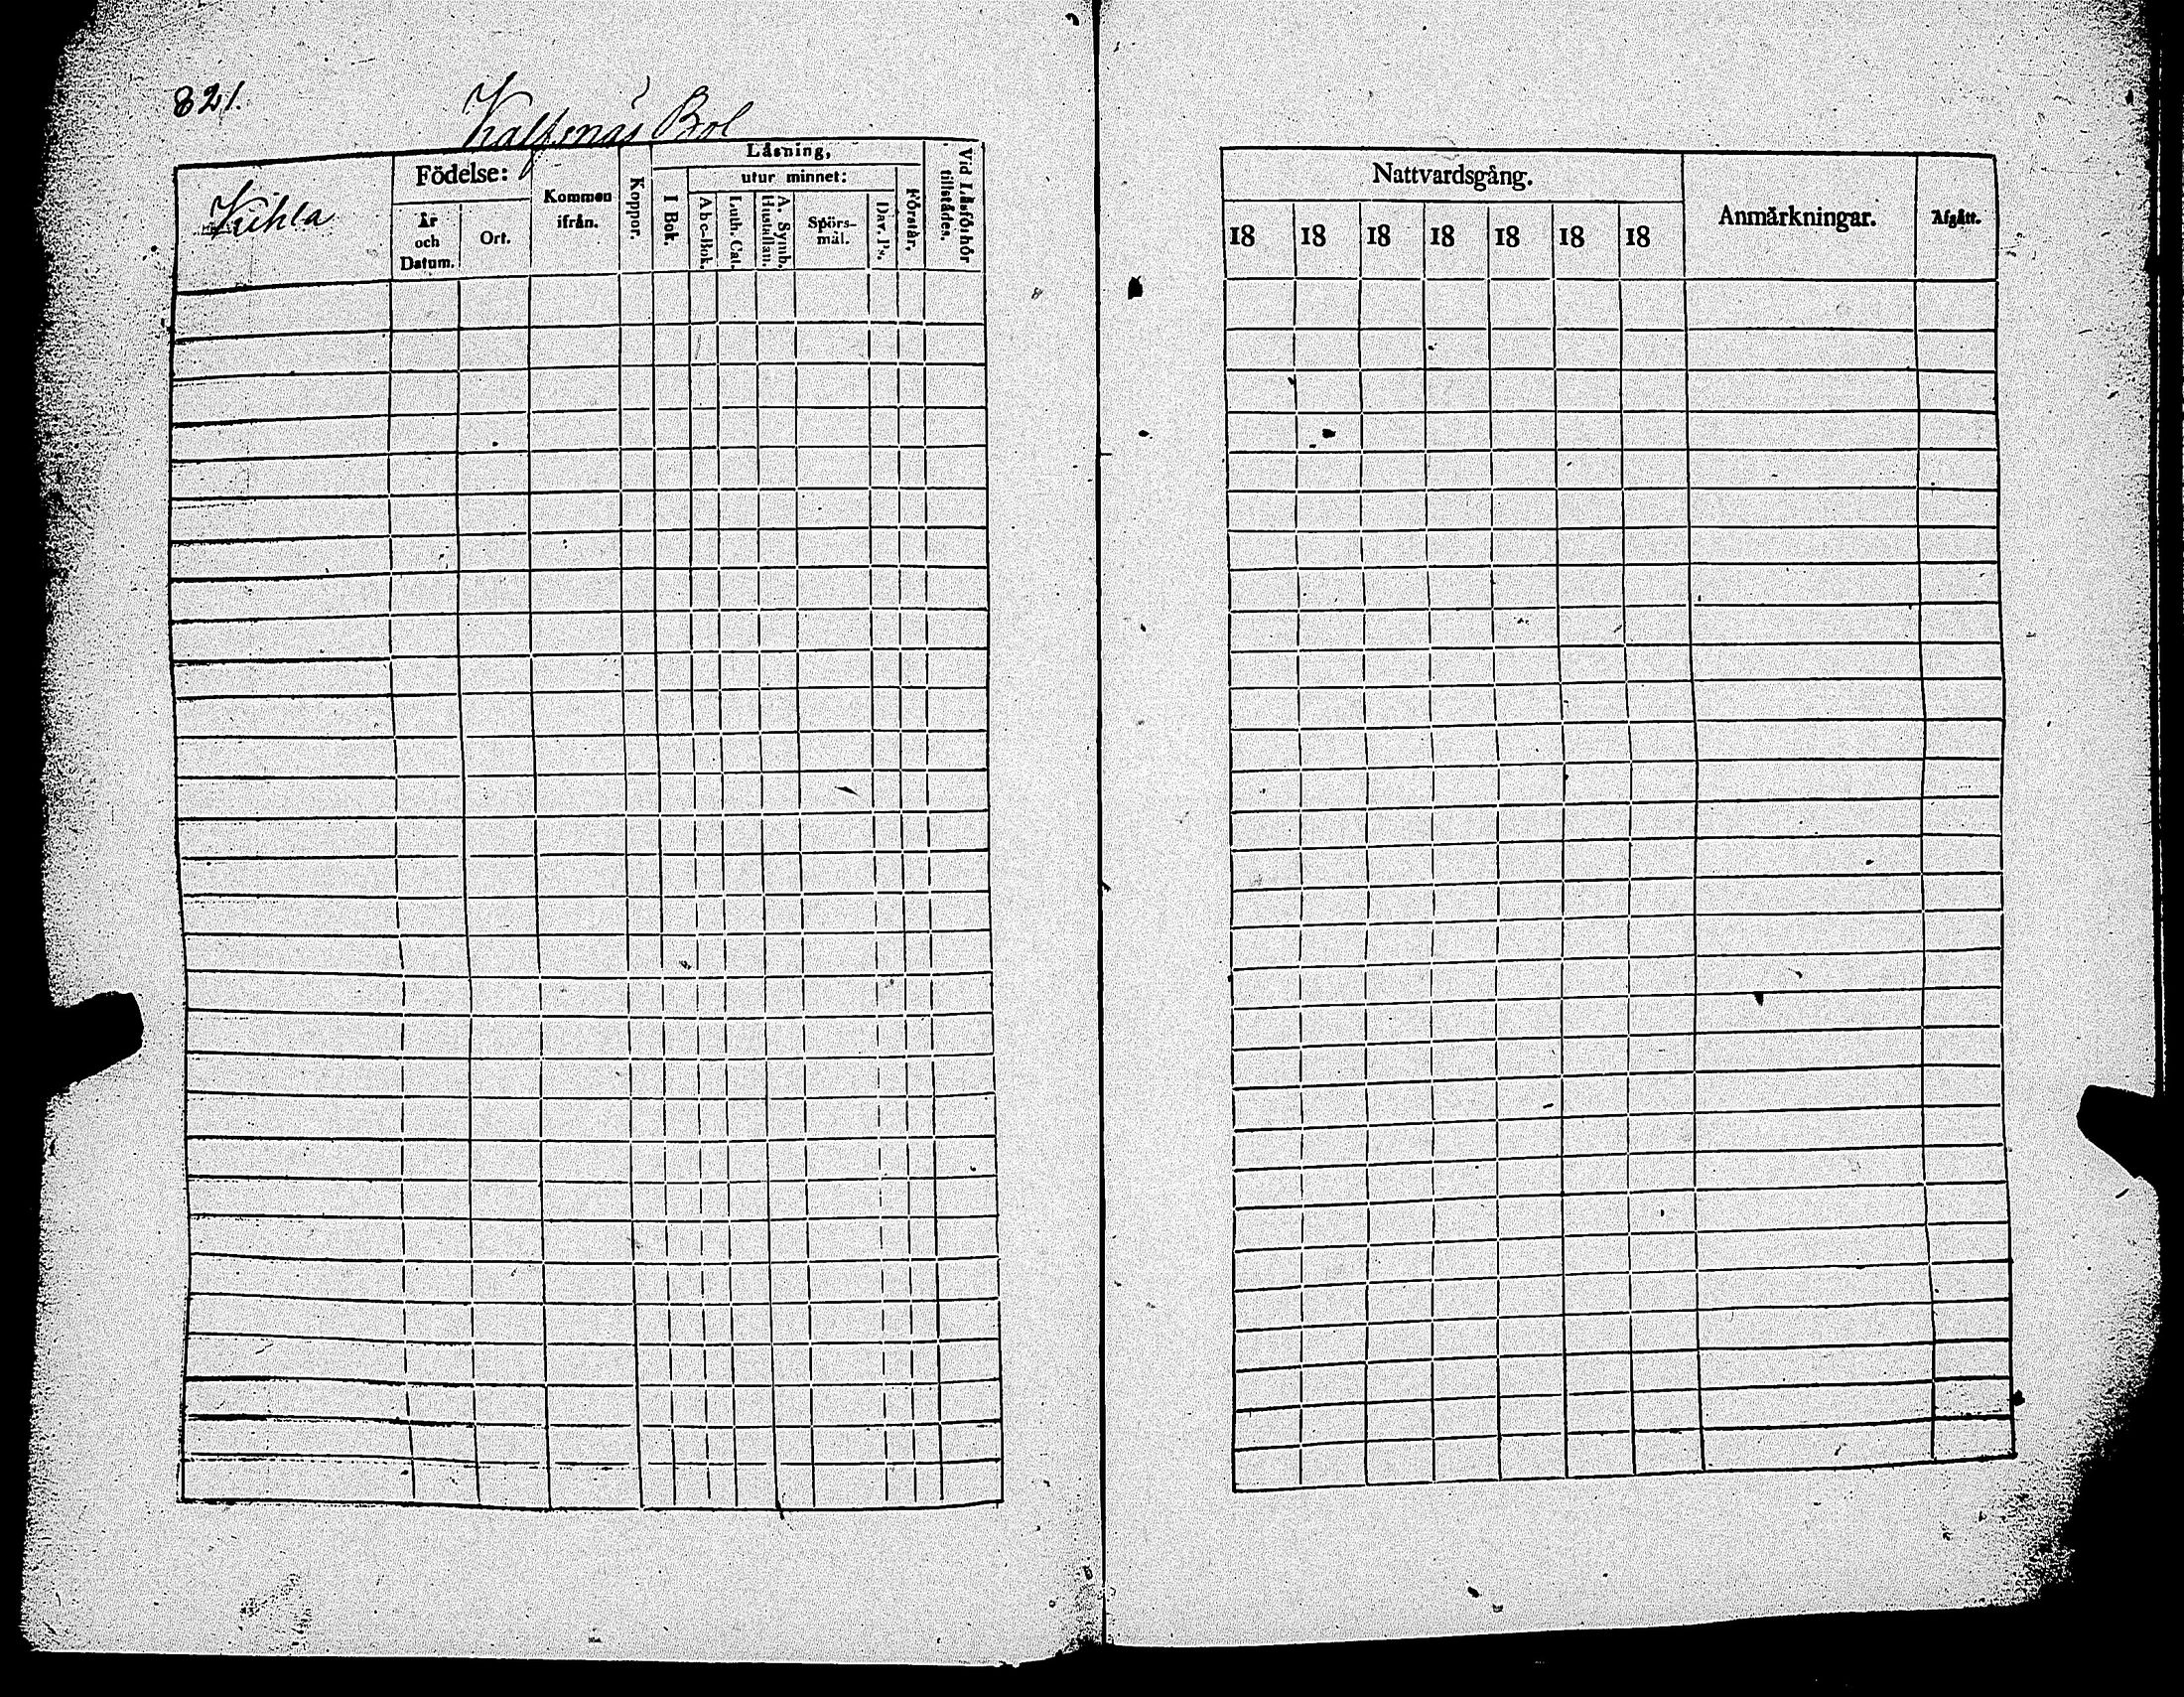 821.
Kalfsnäs Bol
Kihla
Födelse:
År
och
Datum.
Ort.
Kommen
ifrån.
Koppor.
Låsning,
I Bok.
utur minnet:
A b c-Bok.
Luth. Cat.
A. Symb.
Hustaflan.
Spörs-
mål.
Dav. Ps.
Förstår.
Vid Låsförhör
tillstådes.
Nattvardsgång.
18 18 18 18 18 18 18
Anmärkningar.
Afgått.